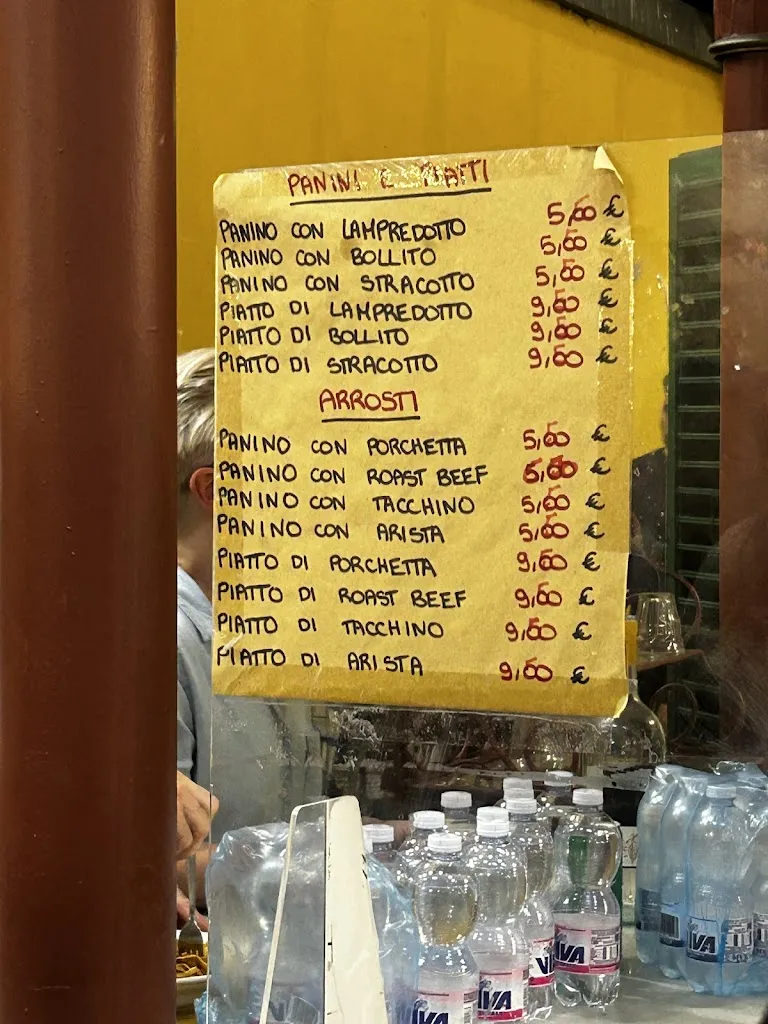 PANINI E PIATTI
PANINO CON LAMPREDOTTO 5,60 €
PANINO CON BOLLITO 5,60 €
PANINO CON STRACOTTO 5,60 €
PIATTO DI LAMPREDOTTO 9,60 €
PIATTO DI BOLLITO 9,60 €
PIATTO DI STRACOTTO 9,60 €
ARROSTI
PANINO CON PORCHETTA 5,60 €
PANINO CON ROAST BEEF €
PANINO CON TACCHINO 5,60 €
PANINO CON ARISTA 5,60 €
PIATTO DI PORCHETTA 9,60 €
PIATTO DI ROAST BEEF 9,60 €
PIATTO DI TACCHINO 9,60 €
PIATTO DI ARISTA 9,60 €